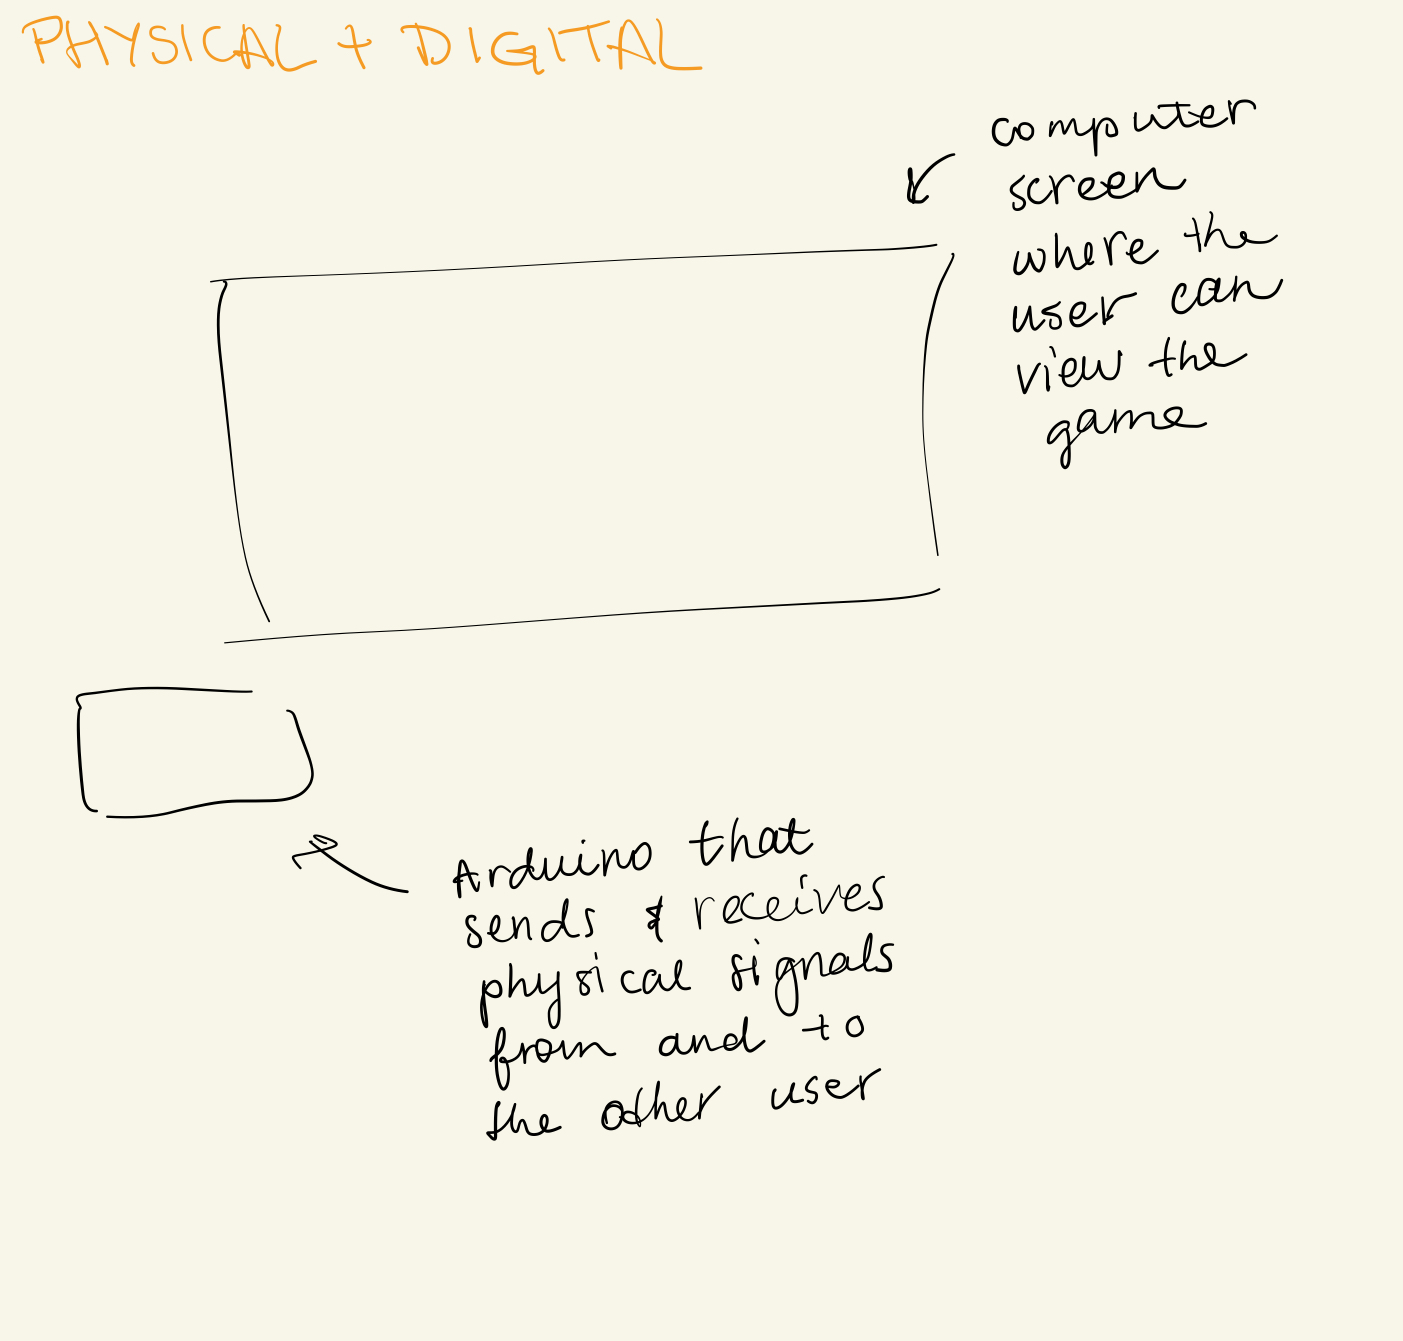 PHYSICAL + DIGITAL
computer
screen
where the
user can
view the
game
Arduino that
sends & receives
physical signals
from and to
the other user